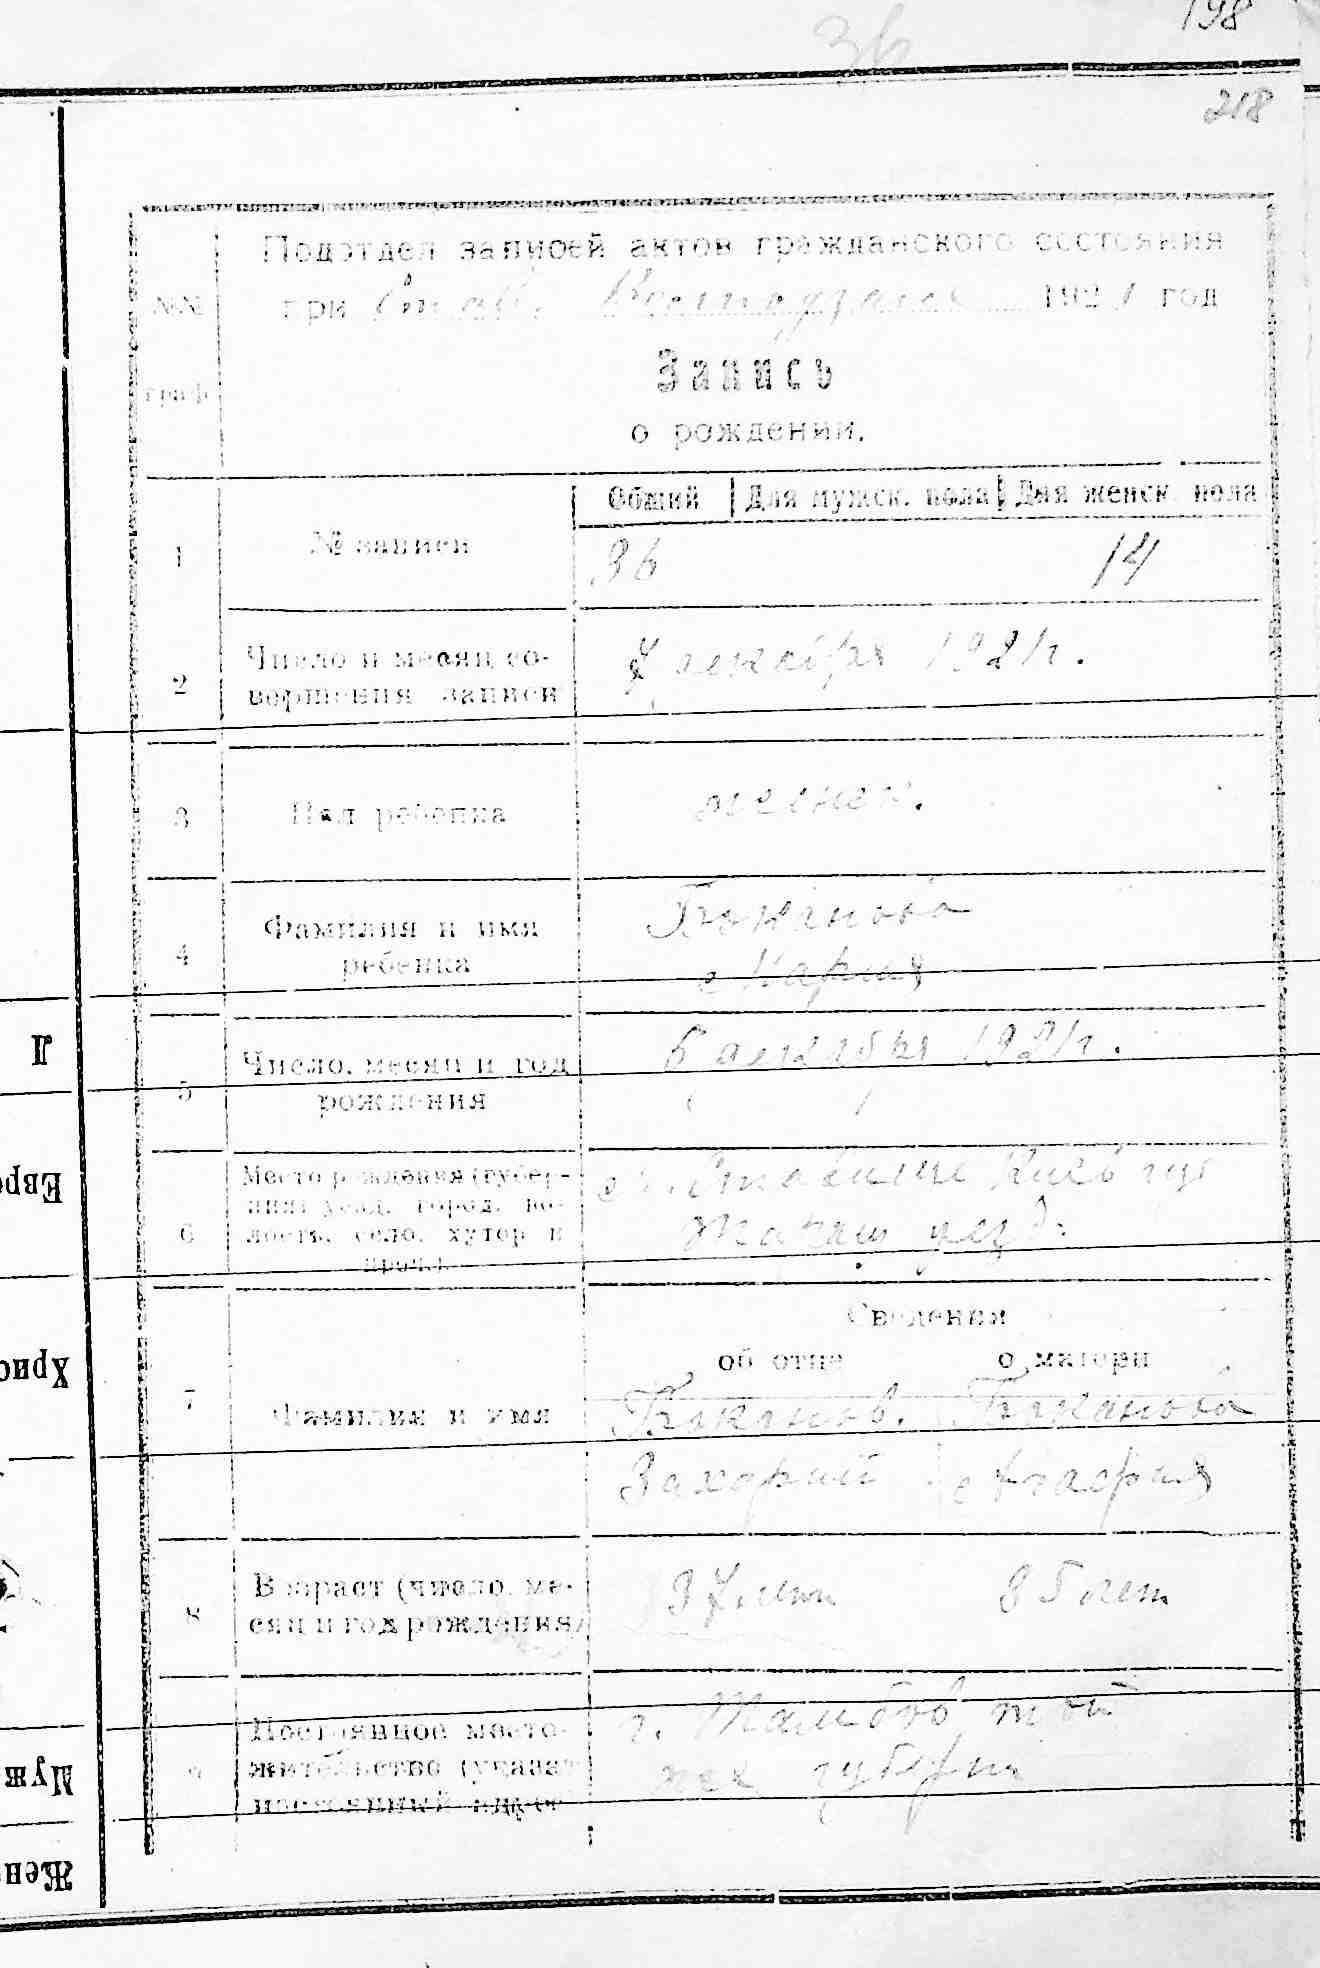 198
36
218
Подотдел записей актов гражданского состояния
при Став. 1921 год
№№ граф
Запись
о рождении.
Общий Для мужск. пола Для женск. пола
1 № записи 36 14
2 Число и месяц со-
вершения записи
7 декабря 1921г.
3 Пол ребенка женск.
4 Фамилия и имя
ребенка
Боканова
Мария
5 Число, месяц и год
рождения
6 декабря 1921г.
6 Место рождения (губер-
ния, уезд, город, во-
лость, село, хутор и
проч.).
м. Ставище Киев губ
уезд.
Сведения
об отце о матери
7 Фамилия и имя
Боканов. Боканова
Захарий
8 Возраст (число, ме-
сяц и год рождения)
37 лет 35 лет
9 Постоянное место-
жительство (указат
постоянный адрес
г. Тамбов той
же губерн
Л
Евре
Хрис
Муж
Жен